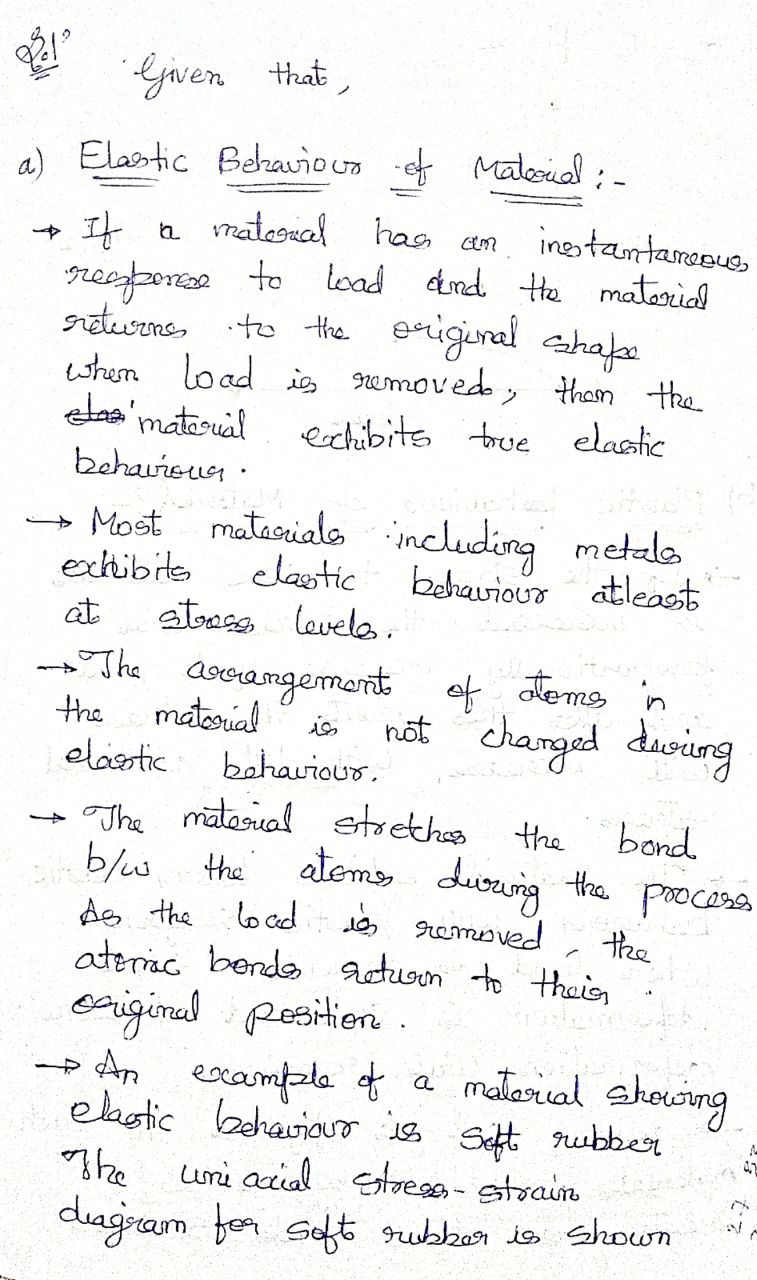 Sol:
Given that,
a) Elastic Behaviour of Material :-
→ If a material has an instantaneous
response to load and the material
returns to the original shape
when load is removed, then the
material exhibits true elastic
behaviour.
→ Most materials including metals
exhibits elastic behaviour atleast
at stress levels.
→ The arrangement of atoms in
the material is not changed during
elastic behaviour.
→ The material stretches the bond
b/w the atoms during the process
As the load is removed, the
atomic bonds return to their
original position.
→ An example of a material showing
elastic behaviour is soft rubber
The uni axial stress-strain
diagram for soft rubber is shown